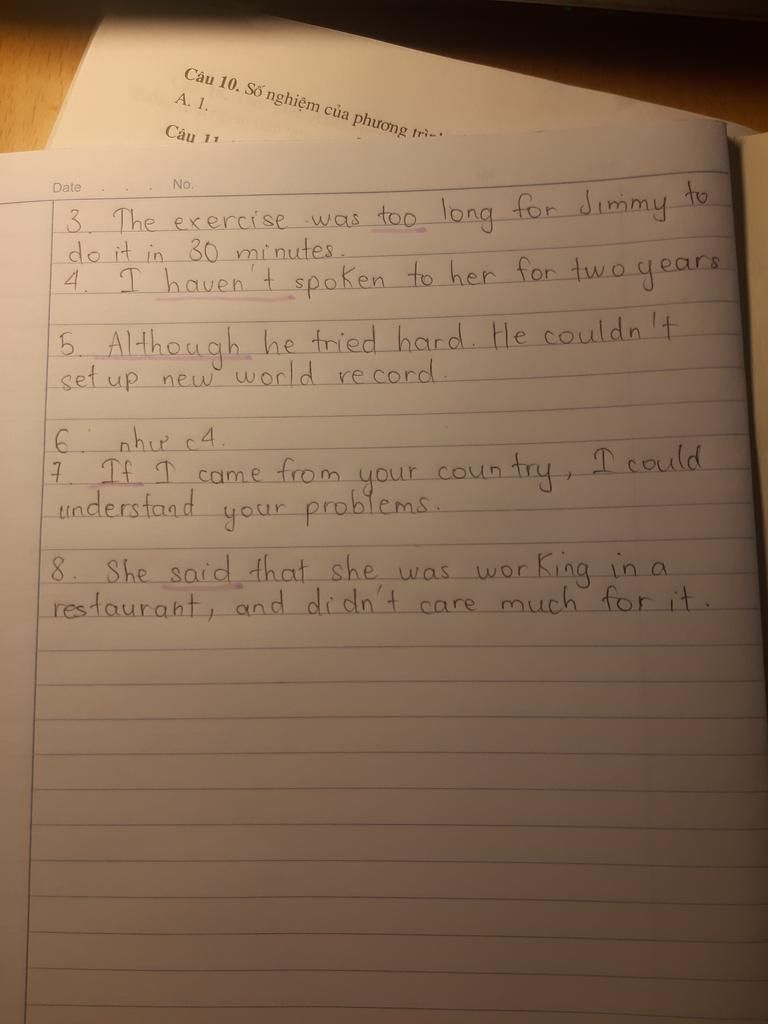 Câu 10. Số nghiệm của phương
A. 1.
Câu 11
Date . . . No.
3. The exercise was too long for Jimmy to
do it in 30 minutes.
4. I haven't spoken to her for two years
5. Although he tried hard. He couldn't
set up new world record.
6. như c4.
7. If I came from your country, I could
understand your problems.
8. She said that she was working in a
restaurant, and didn't care much for it.